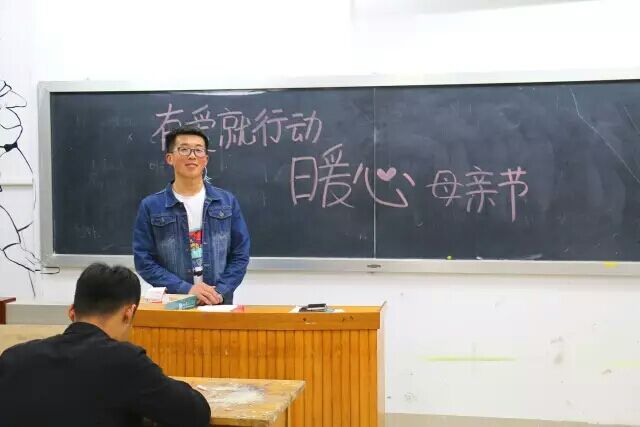 有爱就行动
暖心 母亲节